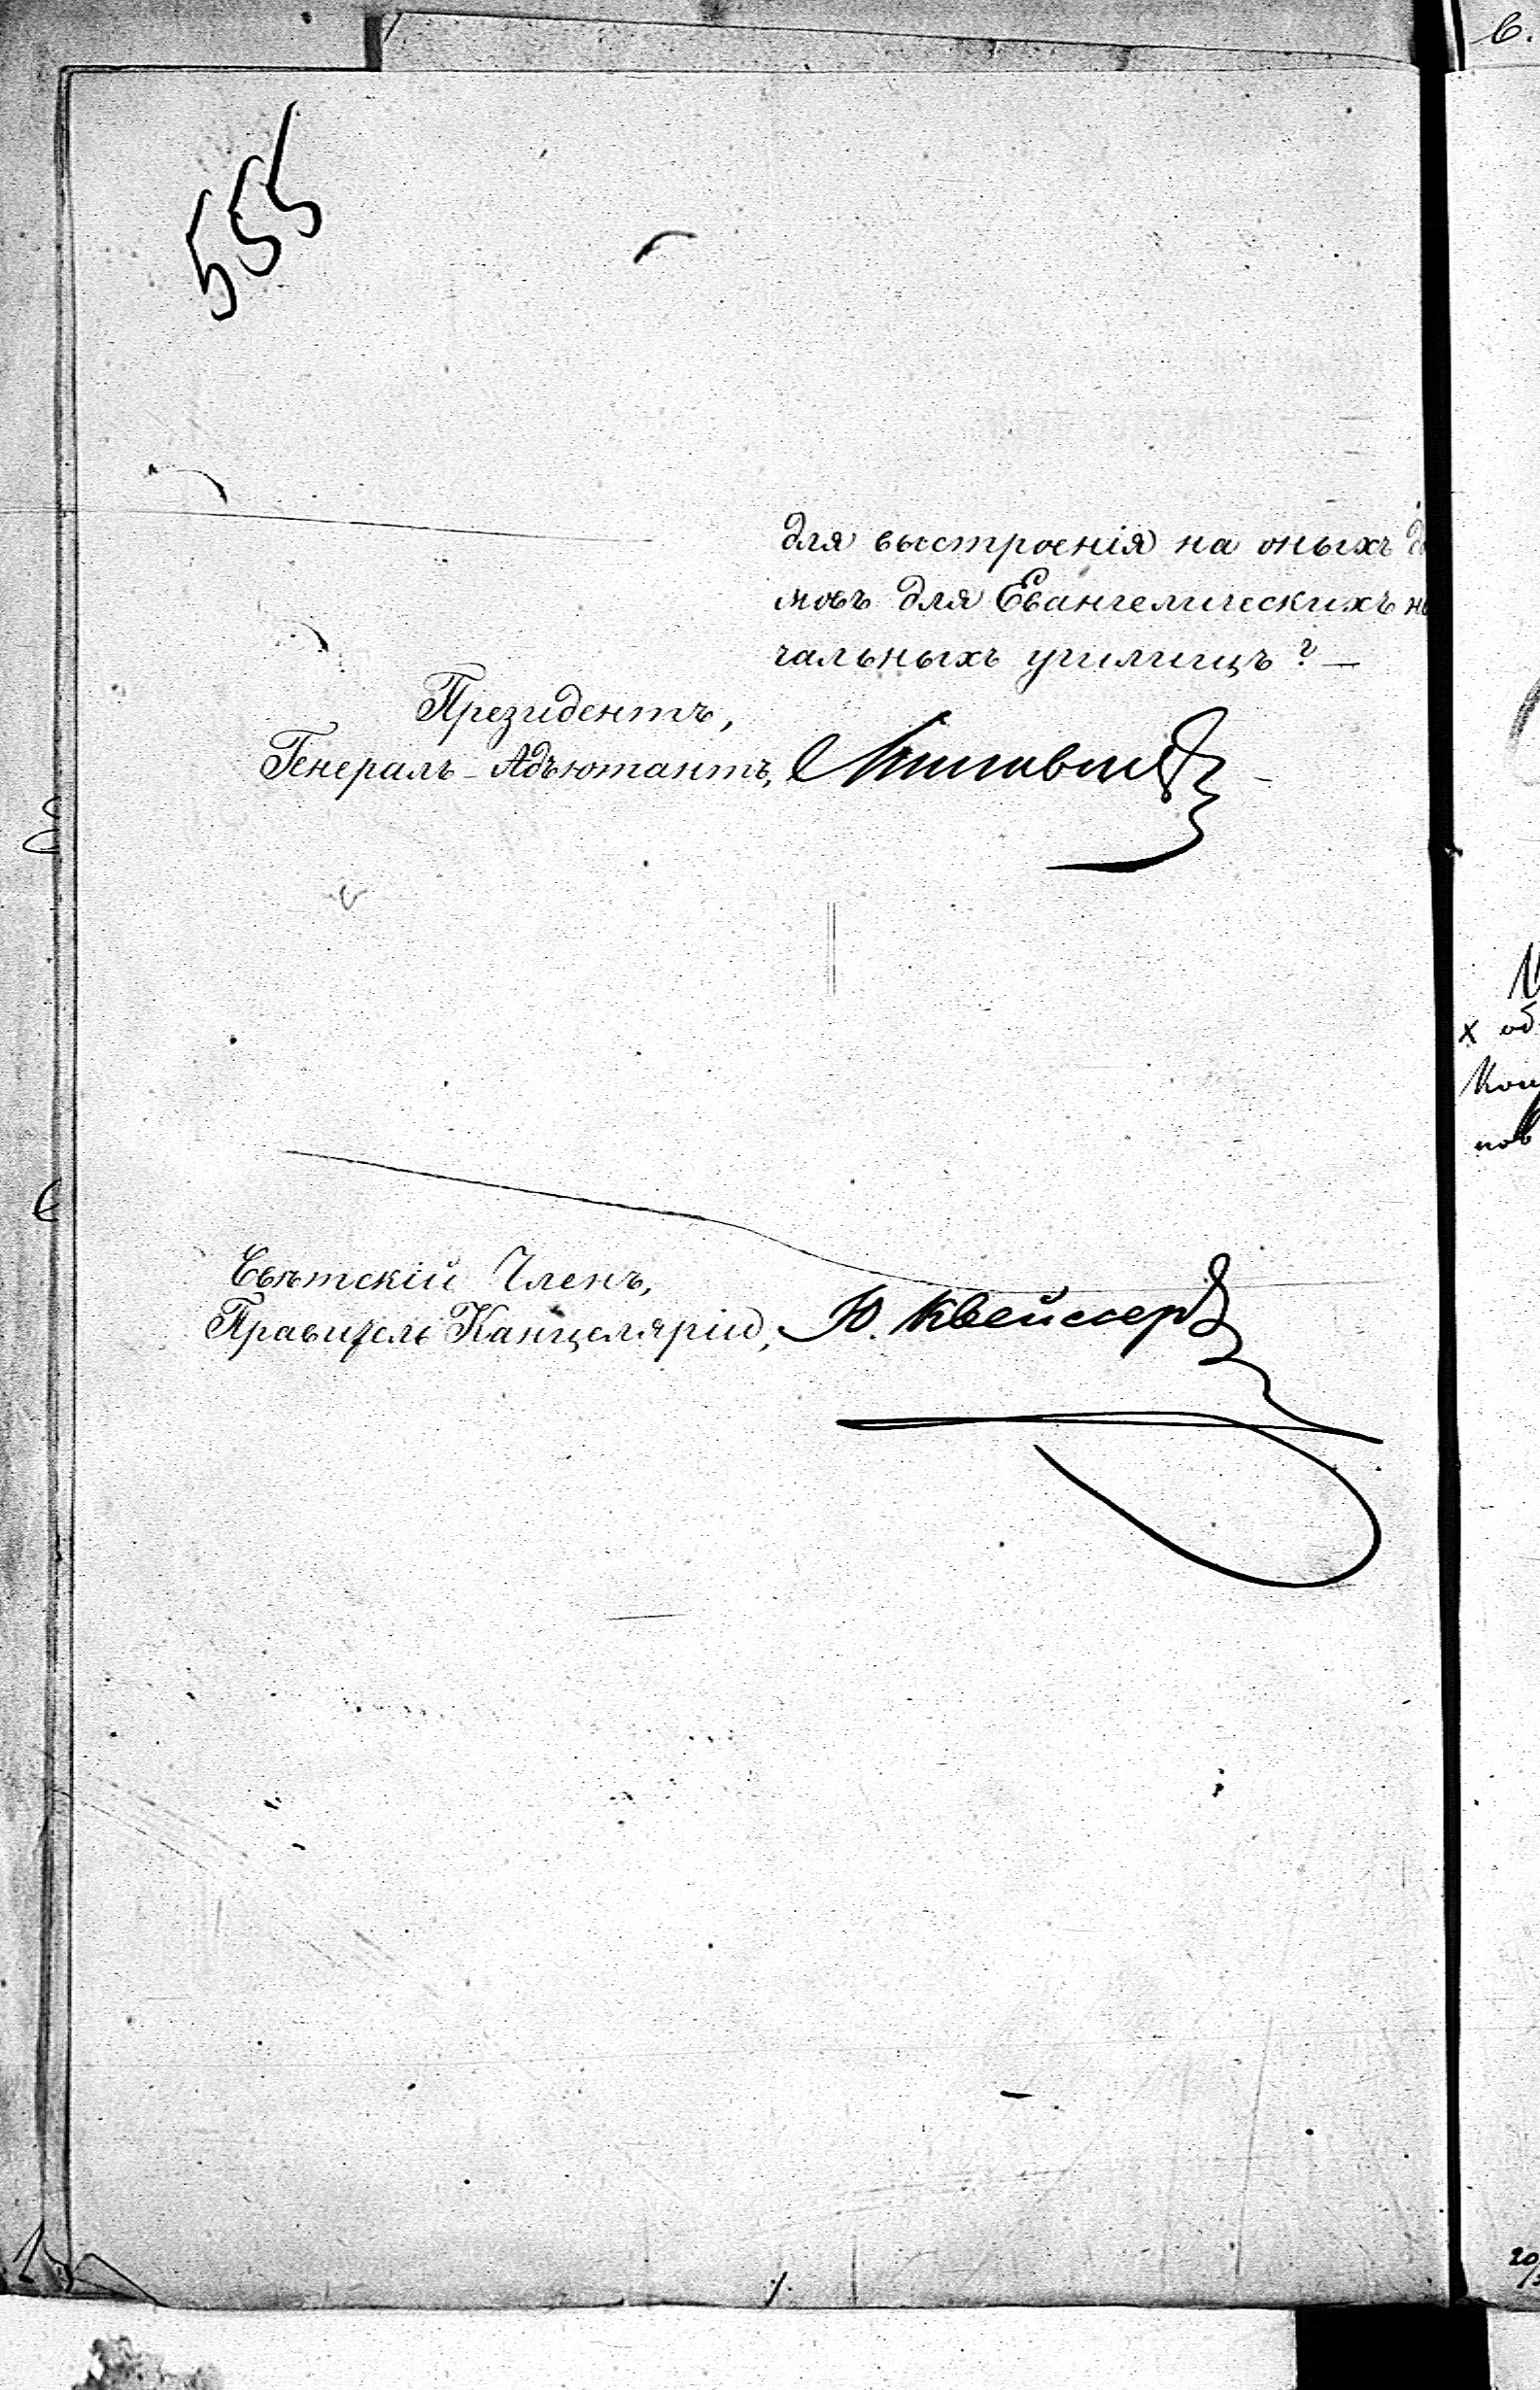 555
для выстроенія на оныхъ до
мовъ для Евангелическихъ на
чальныхъ училищъ? —
Президентъ,
Генералъ-Адъютантъ,
Свѣтскій Членъ,
Правитель Канцеляріи, Ю. Квейссеръ